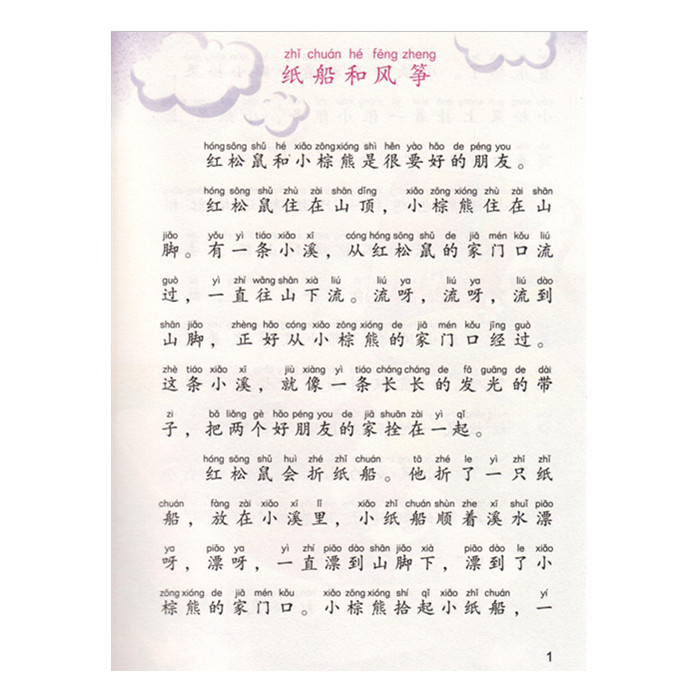 zhǐ chuán hé fēng zheng
纸船和风筝
hóng sōng shǔ hé xiǎo zōng xióng shì hěn yào hǎo de péng you
红松鼠和小棕熊是很要好的朋友。
hóng sōng shǔ zhù zài shān dǐng xiǎo zōng xióng zhù zài shān
红松鼠住在山顶，小棕熊住在山
jiǎo yǒu yì tiáo xiǎo xī cóng hóng sōng shǔ de jiā mén kǒu liú
脚。有一条小溪，从红松鼠的家门口流
guò yì zhí wǎng shān xià liú liú ya liú ya liú dào
过，一直往山下流。流呀，流呀，流到
shān jiǎo zhèng hǎo cóng xiǎo zōng xióng de jiā mén kǒu jīng guò
山脚，正好从小棕熊的家门口经过。
zhè tiáo xiǎo xī jiù xiàng yì tiáo cháng cháng de fā guāng de dài
这条小溪，就像一条长长的发光的带
zi bǎ liǎng gè hǎo péng you de jiā shuān zài yì qǐ
子，把两个好朋友的家拴在一起。
hóng sōng shǔ huì zhé zhǐ chuán tā zhé le yì zhī zhǐ
红松鼠会折纸船。他折了一只纸
chuán fàng zài xiǎo xī lǐ xiǎo zhǐ chuán shùn zhe xī shuǐ piāo
船，放在小溪里，小纸船顺着溪水漂
ya piāo ya yì zhí piāo dào shān jiǎo xià piāo dào le xiǎo
呀，漂呀，一直漂到山脚下，漂到了小
zōng xióng de jiā mén kǒu xiǎo zōng xióng shí qǐ xiǎo zhǐ chuán yí
棕熊的家门口。小棕熊拾起小纸船，一
1